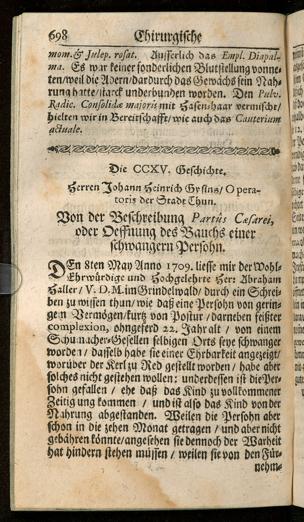 698 Chirurgische
mom. & Julep. rosat. Äusserlich das Empl. Diapal-
ma. Es war keiner sonderlichen Blutstellung vonnö-
ten/weil die Adern/dardurch das Gewächs sein Nah-
rung hatte/starck underbunden worden. Den Pulv.
Radic. Consolidæ majoris mit Hasenhaar vermischt/
hielten wir in Bereitschafft/wie auch das Cauterium
actuale.
Die CCXV. Geschichte.
Herren Johann Heinrich Gysins/Opera-
toris der Stadt Thun.
Von der Beschreibung Partûs Cæsarei,
oder Oeffnung des Bauchs einer
schwangern Persohn.
DEn 8ten May Anno 1709. liesse mir der Wohl-
Ehrwürdige und Hochgelehrte Herr Abraham
Haller/V. D. M. im Grindelwald/durch ein Schrei-
ben zu wissen thun/wie daß eine Persohn von gerin-
gem Vermögen/kurtz von Postur/darneben feister
complexion, ohngeferd 22. Jahr alt/von einem
Schumacher-Gesellen selbigen Orts seye schwanger
worden/dasselb habe sie einer Ehrbarkeit angezeigt/
worüber der Kerl zu Red gestellt worden/habe aber
solches nicht gestehen wollen: underdessen ist die Per-
sohn gefallen/ehe daß das Kind zu vollkommener
Zeitigung kommen/und ist also das Kind von der
Nahrung abgestanden. Weilen die Persohn aber
schon in die zehen Monat getragen/und aber nicht
gebähren könnte/angesehen sie dennoch der Warheit
hat hindern stehen müssen/weilen sie von den Für-
nehm-